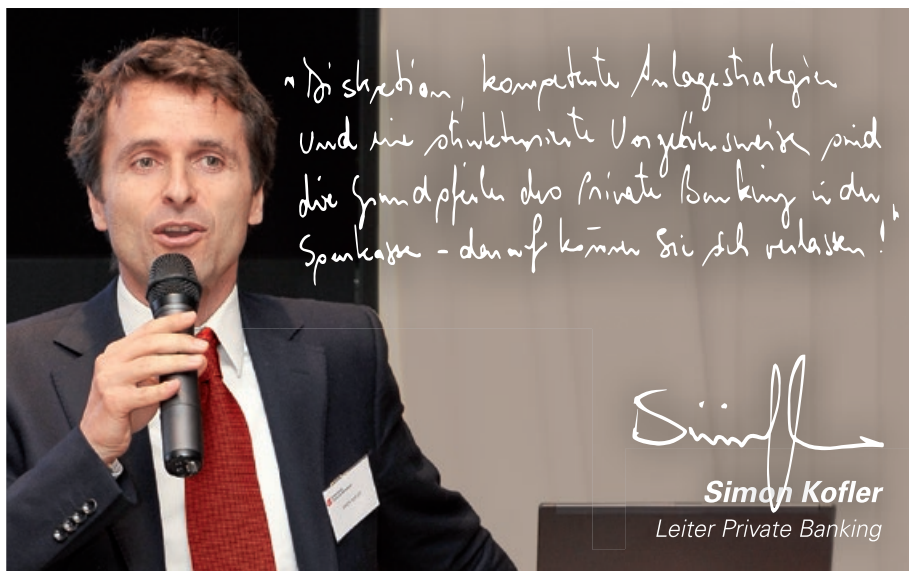 "Diskretion, kompetente Anlagestrategien
und eine strukturierte Vorgehensweise sind
die Grundpfeiler des Private Banking in der
Sparkasse - darauf können Sie sich verlassen!"
Simon Kofler
Leiter Private Banking